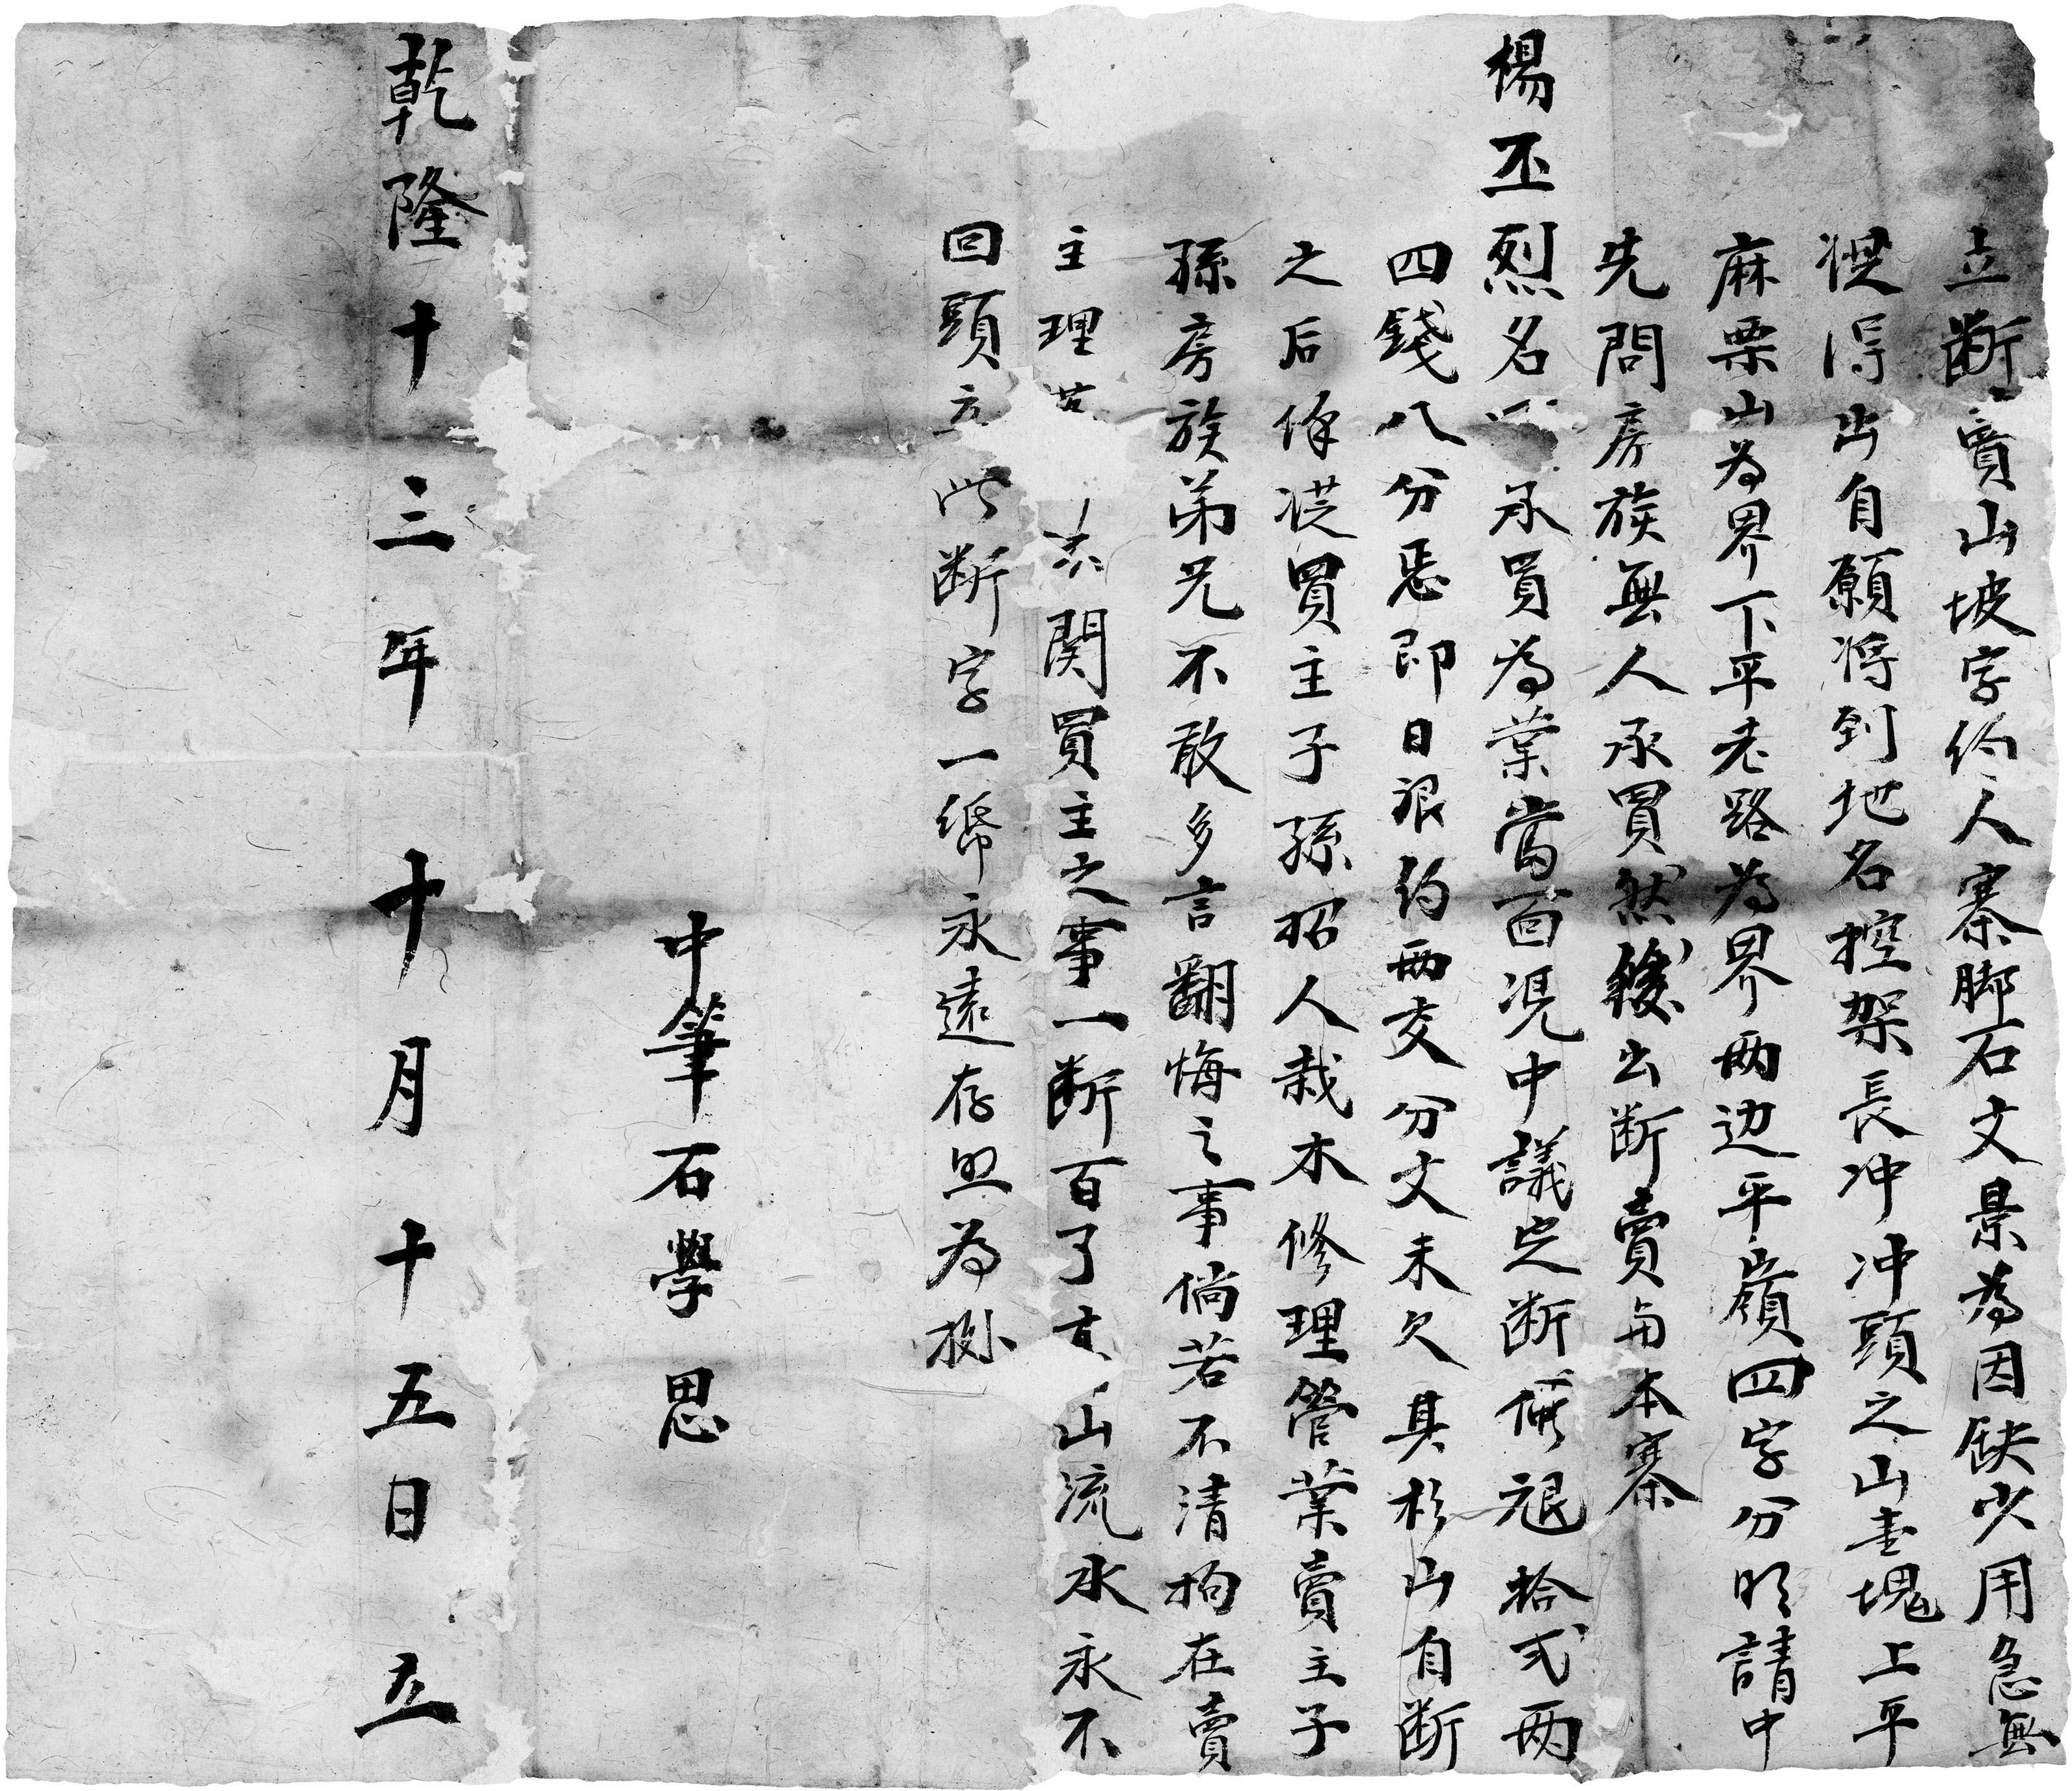 立断賣山坡字約人寨脚石文景為因缺少用急無
得出自願将到地名控架長冲冲頭之山壹塊上平
麻栗山為界下平老路為界两边平嶺四字分明請中
先問房族無人承買然後出断賣与本寨
楊丕烈名承買為業當面凴中議定断價艮拾弍两
四錢八分悉即日銀約两交分文未欠其杉山自断
之后任從買主子孫招人栽木修理管業賣主子
孫房族弟兄不敢多言翻悔之事倘若不清拘在賣
主理関買主之事一断百了山流水永不
回頭立此断字一紙永遠存照為拠
中筆石學思
乾隆十三年十月十五日立